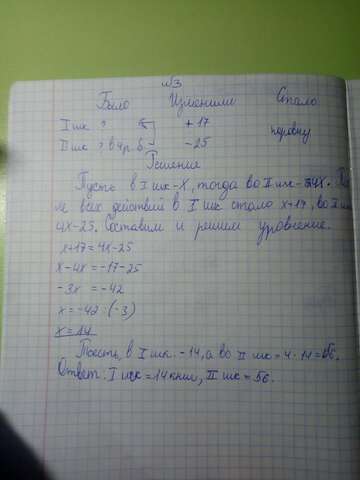 №3
Было Изменили Стало
I шк ? + 17 поровну
II шк ? в 4 р. б. - 25
Решение
Пусть в I шк - х, тогда во II шк - 4х.
ле всех действий в I шк стало х+17, во II шк
4х-25. Составим и решим уравнение.
х+17=4х-25
х-4х=-17-25
-3х=-42
х=-42:(-3)
х=14
Тоесть, в I шк. -14, а во II шк = 4·14=56.
Ответ: I шк=14 книг, II шк = 56.